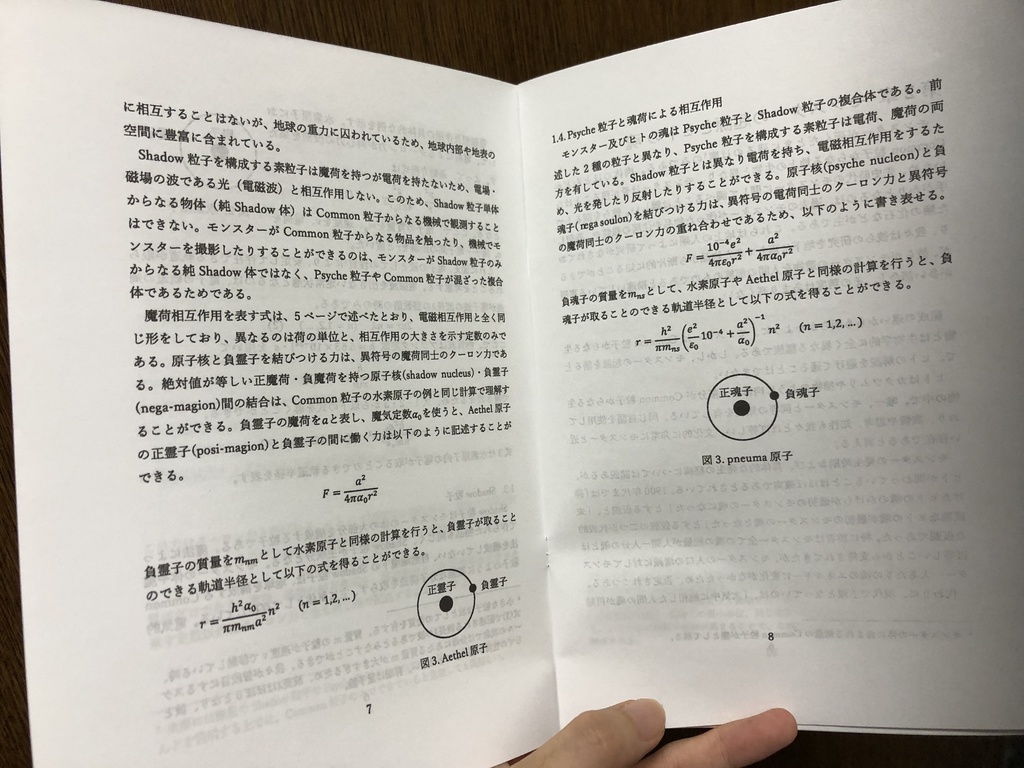 に相互することはないが、地球の重力に囚われているため、地球内部や地表の
空間に豊富に含まれている。
Shadow 粒子を構成する素粒子は魔荷を持つが電荷を持たないため、電場・
磁場の波である光（電磁波）と相互作用しない。このため、Shadow 粒子単体
からなる物体（純 Shadow 体）は Common 粒子からなる機械で観測すること
はできない。モンスターが Common 粒子からなる物品を触ったり、機械でモ
ンスターを撮影したりすることができるのは、モンスターが Shadow 粒子のみ
からなる純 Shadow 体ではなく、Psyche 粒子や Common 粒子が混ざった複合
体であるためである。
魔荷相互作用を表す式は、5 ページで述べたとおり、電磁相互作用と全く同
じ形をしており、異なるのは荷の単位と、相互作用の大きさを示す定数のみで
ある。原子核と負霊子を結びつける力は、異符号の魔荷同士のクーロン力であ
る。絶対値が等しい正魔荷・負魔荷を持つ原子核(shadow nucleus)・負霊子
(nega-magion)間の結合は、Common 粒子の水素原子の例と同じ計算で理解す
ることができる。負霊子の魔荷をaと表し、魔気定数α₀を使うと、Aethel 原子
の正霊子(posi-magion)と負霊子の間に働く力は以下のように記述することが
できる。
F = a²/4πα₀r²
負霊子の質量をmₙₘとして水素原子と同様の計算を行うと、負霊子が取ること
のできる軌道半径として以下の式を得ることができる。
r = h²α₀/πmₙₘa² n² (n = 1,2, …)
正霊子 負霊子
図 3. Aethel 原子
7
1.4. Psyche 粒子と魂荷による相互作用
モンスター及びヒトの魂は Psyche 粒子と Shadow 粒子の複合体である。前
述した 2 種の粒子と異なり、Psyche 粒子を構成する素粒子は電荷、魔荷の両
方を有している。Shadow 粒子とは異なり電荷を持ち、電磁相互作用をするた
め、光を発したり反射したりすることができる。原子核(psyche nucleon)と負
魂子(nega soulon)を結びつける力は、異符号の電荷同士のクーロン力と異符号
の魔荷同士のクーロン力の重ね合わせであるため、以下のように書き表せる。
F = 10⁻⁴e²/4πε₀r² + a²/4πα₀r²
負魂子の質量をmₙₛとして、水素原子や Aethel 原子と同様の計算を行うと、負
魂子が取ることのできる軌道半径として以下の式を得ることができる。
r = h²/πmₙₛ (e²/ε₀ 10⁻⁴ + a²/α₀)⁻¹ n² (n = 1,2, …)
正魂子 負魂子
図 3. pneuma 原子
8